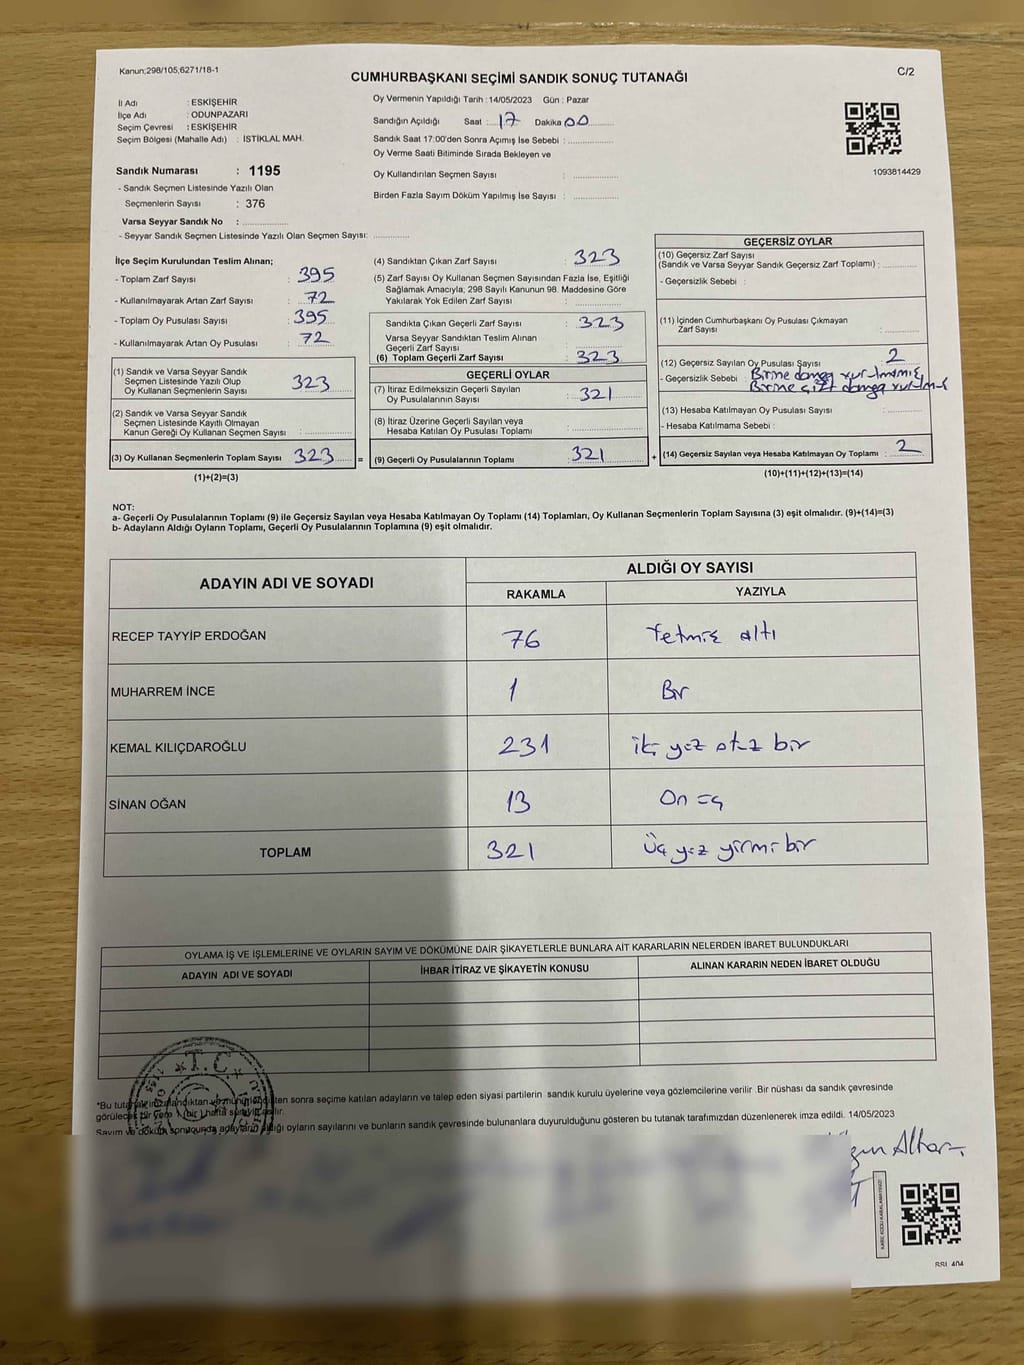 Kanun;298/105;6271/18-1
C/2
CUMHURBAŞKANI SEÇİMİ SANDIK SONUÇ TUTANAĞI
İl Adı : ESKİŞEHİR
İlçe Adı : ODUNPAZARI
Seçim Çevresi : ESKİŞEHİR
Seçim Bölgesi (Mahalle Adı) : İSTİKLAL MAH.
Sandık Numarası : 1195
- Sandık Seçmen Listesinde Yazılı Olan
Seçmenlerin Sayısı : 376
Varsa Seyyar Sandık No : ..............
- Seyyar Sandık Seçmen Listesinde Yazılı Olan Seçmen Sayısı: ............
Oy Vermenin Yapıldığı Tarih : 14/05/2023 Gün : Pazar
Sandığın Açıldığı Saat : 17 Dakika 00
Sandık Saat 17:00'den Sonra Açımış İse Sebebi : ..............
Oy Verme Saati Bitiminde Sırada Bekleyen ve
Oy Kullandırılan Seçmen Sayısı : ..............
Birden Fazla Sayım Döküm Yapılmış İse Sayısı : ..............
1093814429
İlçe Seçim Kurulundan Teslim Alınan;
- Toplam Zarf Sayısı : 395
- Kullanılmayarak Artan Zarf Sayısı : 72
- Toplam Oy Pusulası Sayısı : 395
- Kullanılmayarak Artan Oy Pusulası : 72
(1) Sandık ve Varsa Seyyar Sandık
Seçmen Listesinde Yazılı Olup
Oy Kullanan Seçmenlerin Sayısı : 323
(2) Sandık ve Varsa Seyyar Sandık
Seçmen Listesinde Kayıtlı Olmayan
Kanun Gereği Oy Kullanan Seçmen Sayısı : ..............
(3) Oy Kullanan Seçmenlerin Toplam Sayısı : 323
(1)+(2)=(3)
=
(4) Sandıktan Çıkan Zarf Sayısı : 323
(5) Zarf Sayısı Oy Kullanan Seçmen Sayısından Fazla İse, Eşitliği
Sağlamak Amacıyla; 298 Sayılı Kanunun 98. Maddesine Göre
Yakılarak Yok Edilen Zarf Sayısı : ..............
Sandıkta Çıkan Geçerli Zarf Sayısı : 323
Varsa Seyyar Sandıktan Teslim Alınan
Geçerli Zarf Sayısı : ..............
(6) Toplam Geçerli Zarf Sayısı : 323
GEÇERLİ OYLAR
(7) İtiraz Edilmeksizin Geçerli Sayılan
Oy Pusulalarının Sayısı : 321
(8) İtiraz Üzerine Geçerli Sayılan veya
Hesaba Katılan Oy Pusulası Toplamı : ..............
(9) Geçerli Oy Pusulalarının Toplamı : 321
+
GEÇERSİZ OYLAR
(10) Geçersiz Zarf Sayısı
(Sandık ve Varsa Seyyar Sandık Geçersiz Zarf Toplamı) : ............
- Geçersizlik Sebebi :
(11) İçinden Cumhurbaşkanı Oy Pusulası Çıkmayan
Zarf Sayısı : ............
(12) Geçersiz Sayılan Oy Pusulası Sayısı : 2
- Geçersizlik Sebebi : Birine damga vurulmamış,
Birine çift damga vurulmuş
(13) Hesaba Katılmayan Oy Pusulası Sayısı : ............
- Hesaba Katılmama Sebebi :
(14) Geçersiz Sayılan veya Hesaba Katılmayan Oy Toplamı : 2
(10)+(11)+(12)+(13)=(14)
NOT:
a- Geçerli Oy Pusulalarının Toplamı (9) ile Geçersiz Sayılan veya Hesaba Katılmayan Oy Toplamı (14) Toplamları, Oy Kullanan Seçmenlerin Toplam Sayısına (3) eşit olmalıdır. (9)+(14)=(3)
b- Adayların Aldığı Oyların Toplamı, Geçerli Oy Pusulalarının Toplamına (9) eşit olmalıdır.
ADAYIN ADI VE SOYADI
ALDIĞI OY SAYISI
RAKAMLA YAZIYLA
RECEP TAYYİP ERDOĞAN 76 Yetmiş altı
MUHARREM İNCE 1 Bir
KEMAL KILIÇDAROĞLU 231 iki yüz otuz bir
SİNAN OĞAN 13 On üç
TOPLAM 321 Üç yüz yirmi bir
OYLAMA İŞ VE İŞLEMLERİNE VE OYLARIN SAYIM VE DÖKÜMÜNE DAİR ŞİKAYETLERLE BUNLARA AİT KARARLARIN NELERDEN İBARET BULUNDUKLARI
ADAYIN ADI VE SOYADI İHBAR İTİRAZ VE ŞİKAYETİN KONUSU ALINAN KARARIN NEDEN İBARET OLDUĞU
T.C.
*Bu tutanak imzalandıktan ve mühürlendikten sonra seçime katılan adayların ve talep eden siyasi partilerin sandık kurulu üyelerine veya gözlemcilerine verilir .Bir nüshası da sandık çevresinde
görülecek bir yere 1 (bir) hafta süreyle asılır.
Sayım ve döküm sonucunda adayların aldığı oyların sayılarını ve bunların sandık çevresinde bulunanlara duyurulduğunu gösteren bu tutanak tarafımızdan düzenlenerek imza edildi. 14/05/2023